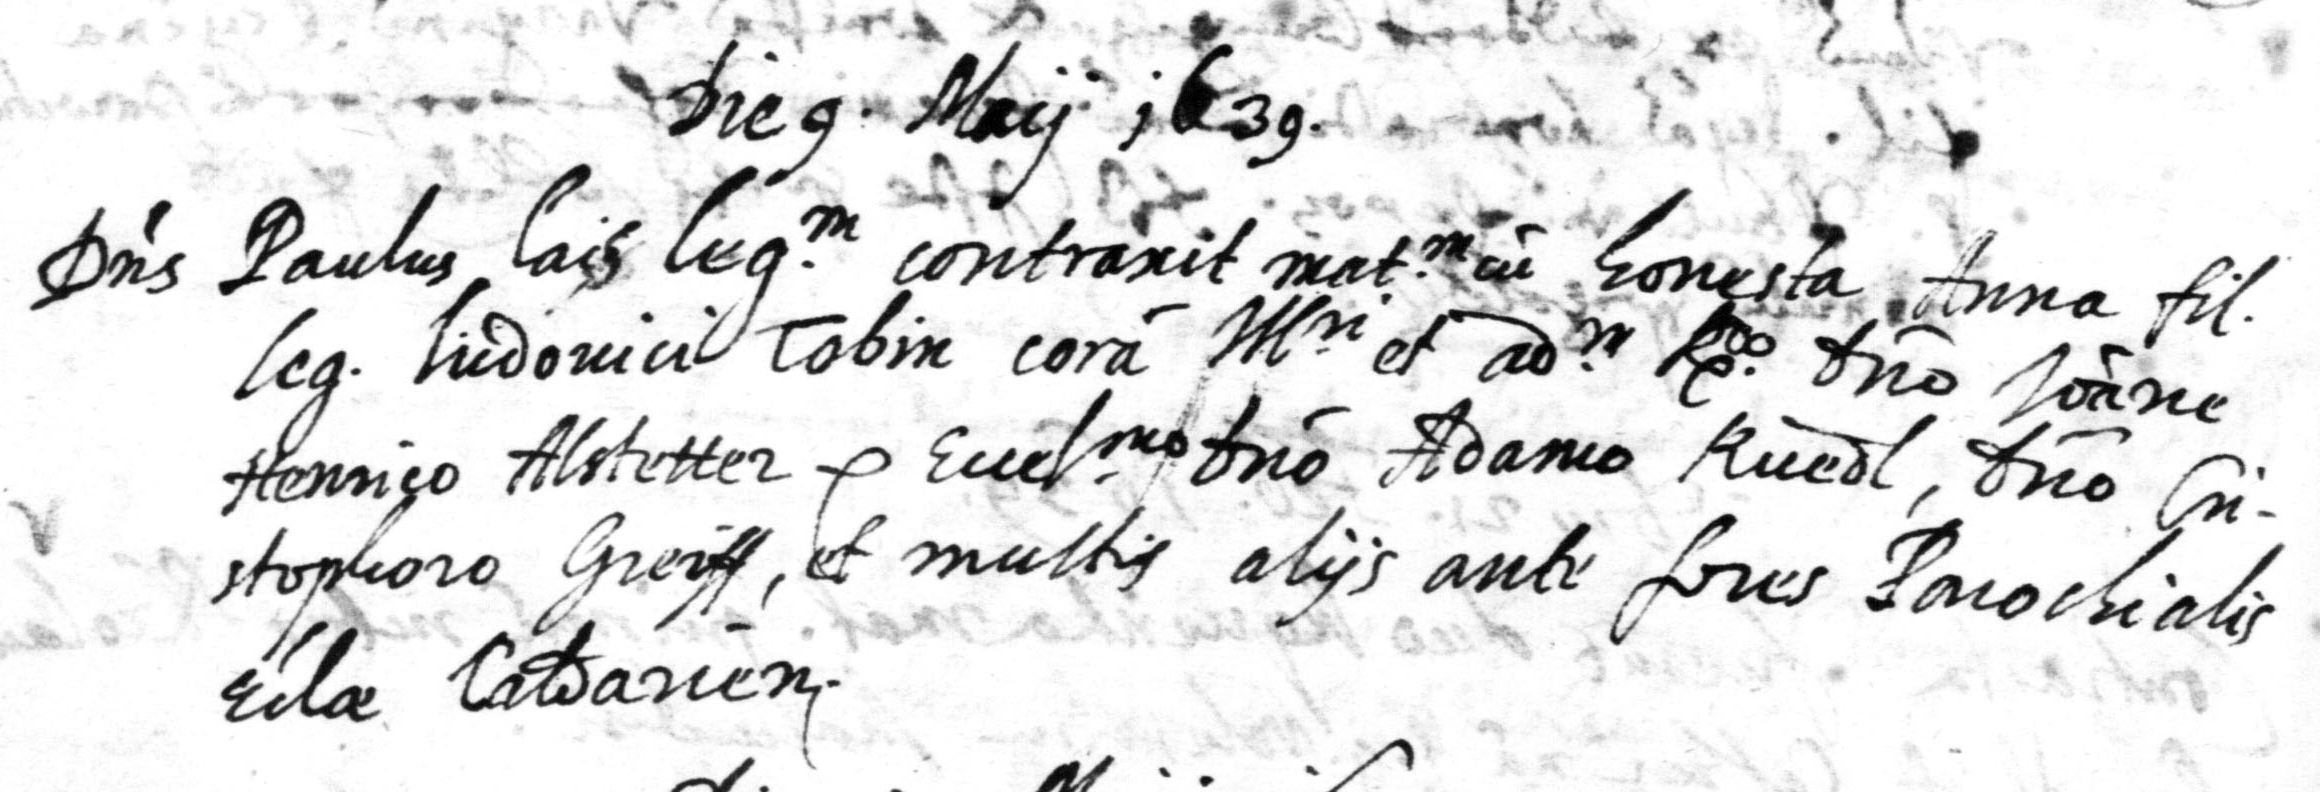 Die 9. Maij 1639.
Dns Paulus Lais leg.m contraxit mat.m cū honesta Anna fil.
leg. Ludovici Tobin corā Ill.ri et ad.m R.do dno Joāne
Henrico Alstetter p Excel.mo dnō Adamo Kuedl, dnō Cri-
stophoro Greiff, et multis alijs ante fores Parochialis
Eclæ Caldarien.